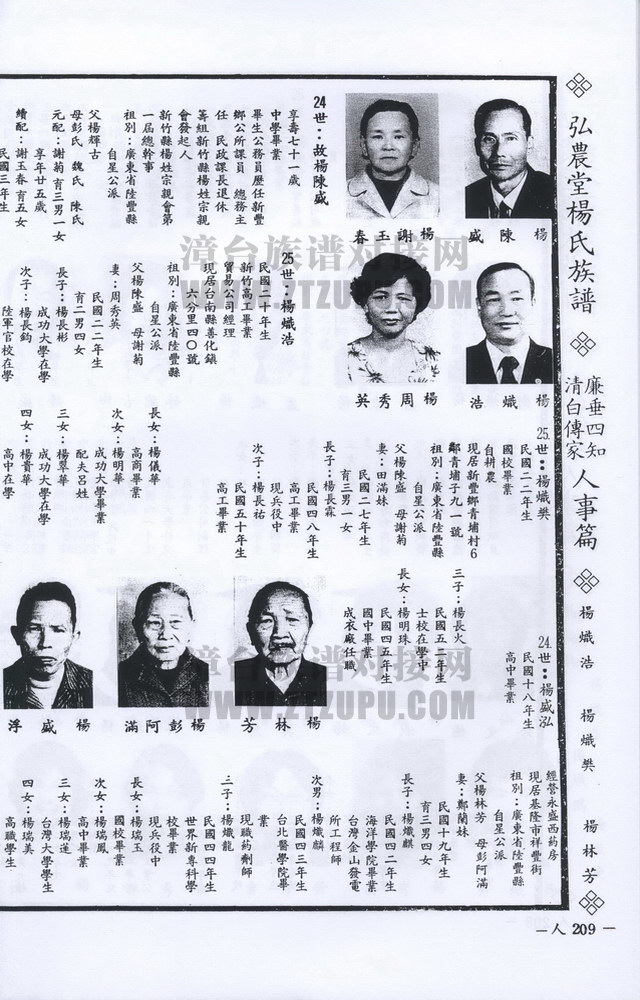 弘農堂楊氏族譜
廉垂四知
清白傳家
人事篇
楊熾浩
楊熾樊
楊林芳
楊陳盛
楊謝玉春
24世：故楊陳盛
享壽七十一歲
中學畢業
畢生公務員歷任新豐
鄉公所課員 總務主
任 民政課長退休
籌組新竹縣楊姓宗親
會發起人
新竹縣楊姓宗親會第
一屆總幹事
祖別：廣東省陸豐縣
自星公派
父楊輝古
母彭氏 魏氏 陳氏
元配：謝菊育三男一女
享年廿五歲
續配：謝玉春育五女
民國三年生
楊熾浩
楊周秀英
25世：楊熾浩
民國二十年生
新竹高工畢業
貿易公司經理
現居台南縣善化鎮
六分里四〇號
祖別：廣東省陸豐縣
自星公派
父楊陳盛 母謝菊
妻：周秀英
民國二二年生
育二男四女
長子：楊長彬
成功大學在學
次子：楊長鈞
陸軍官校在學
長女：楊儀華
高商畢業
次女：楊明華
成功大學畢業
配夫呂姓
三女：楊翠華
成功大學在學
四女：楊貴華
高中在學
25世：楊熾樊
民國二二年生
國校畢業
自耕農
現居新豐鄉青埔村6
鄰青埔子九一號
祖別：廣東省陸豐縣
自星公派
父楊陳盛 母謝菊
妻：田滿妹
民國二七年生
育三男一女
長子：楊長霖
民國四八年生
高工畢業
現兵役中
次子：楊長祐
民國五十年生
高工畢業
三子：楊長火
民國五二年生
士校在學中
長女：楊明珠
民國四五年生
國中畢業
成衣廠任職
楊林芳
楊彭阿滿
楊盛浮
24世：楊盛泓
民國十八年生
高中畢業
經營永盛西药房
現居基隆市祥豐街
祖別：廣東省陸豐縣
自星公派
父楊林芳 母彭阿滿
妻：鄭蘭妹
民國十九年生
育三男四女
長子：楊熾麒
民國四二年生
海洋學院畢業
台灣金山發電
所工程師
次男：楊熾麟
民國四三年生
台北醫學院畢
業
現職葯劑師
三子：楊熾龍
民國四四年生
世界新專科學
校畢業
現兵役中
長女：楊瑞玉
國校畢業
次女：楊瑞鳳
高中畢業
三女：楊瑞蓮
台灣大學學生
四女：楊瑞美
高職學生
－人 209 －
漳台族谱对接网
WWW.ZTZUPU.COM
漳台族谱对接网
WWW.ZTZUPU.COM